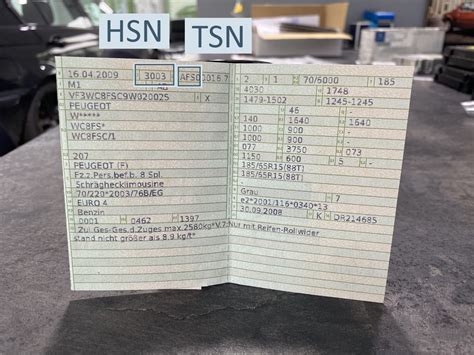 HSN TSN
16.04.2009 3003 AFS00016 7
M1
VF3WC8FSC9W020025 X
PEUGEOT
W*****
WC8FS*
WC8FSC/1
207
PEUGEOT (F)
Fz.z.Pers.bef.b. 8 Spl.
Schräghecklimousine
70/220*2003/76B/EG
EURO 4
Benzin
0001 0462 1397
Zul.Ges-Ges.d.Zuges max.2580kg*V.7:Nur mit Reifen-Rollwider
stand nicht größer als 8,9 kg/t*
2 1 70/6000 185
4030 1748
1479-1502 1245-1245
46 -
140 1640 1640
1000 900 -
1000 900 -
077 3750 073
1150 600 5 -
185/65R15(88T)
185/65R15(88T)
-
Grau 7
e2*2001/116*0340*13
30.09.2008 K DR214685